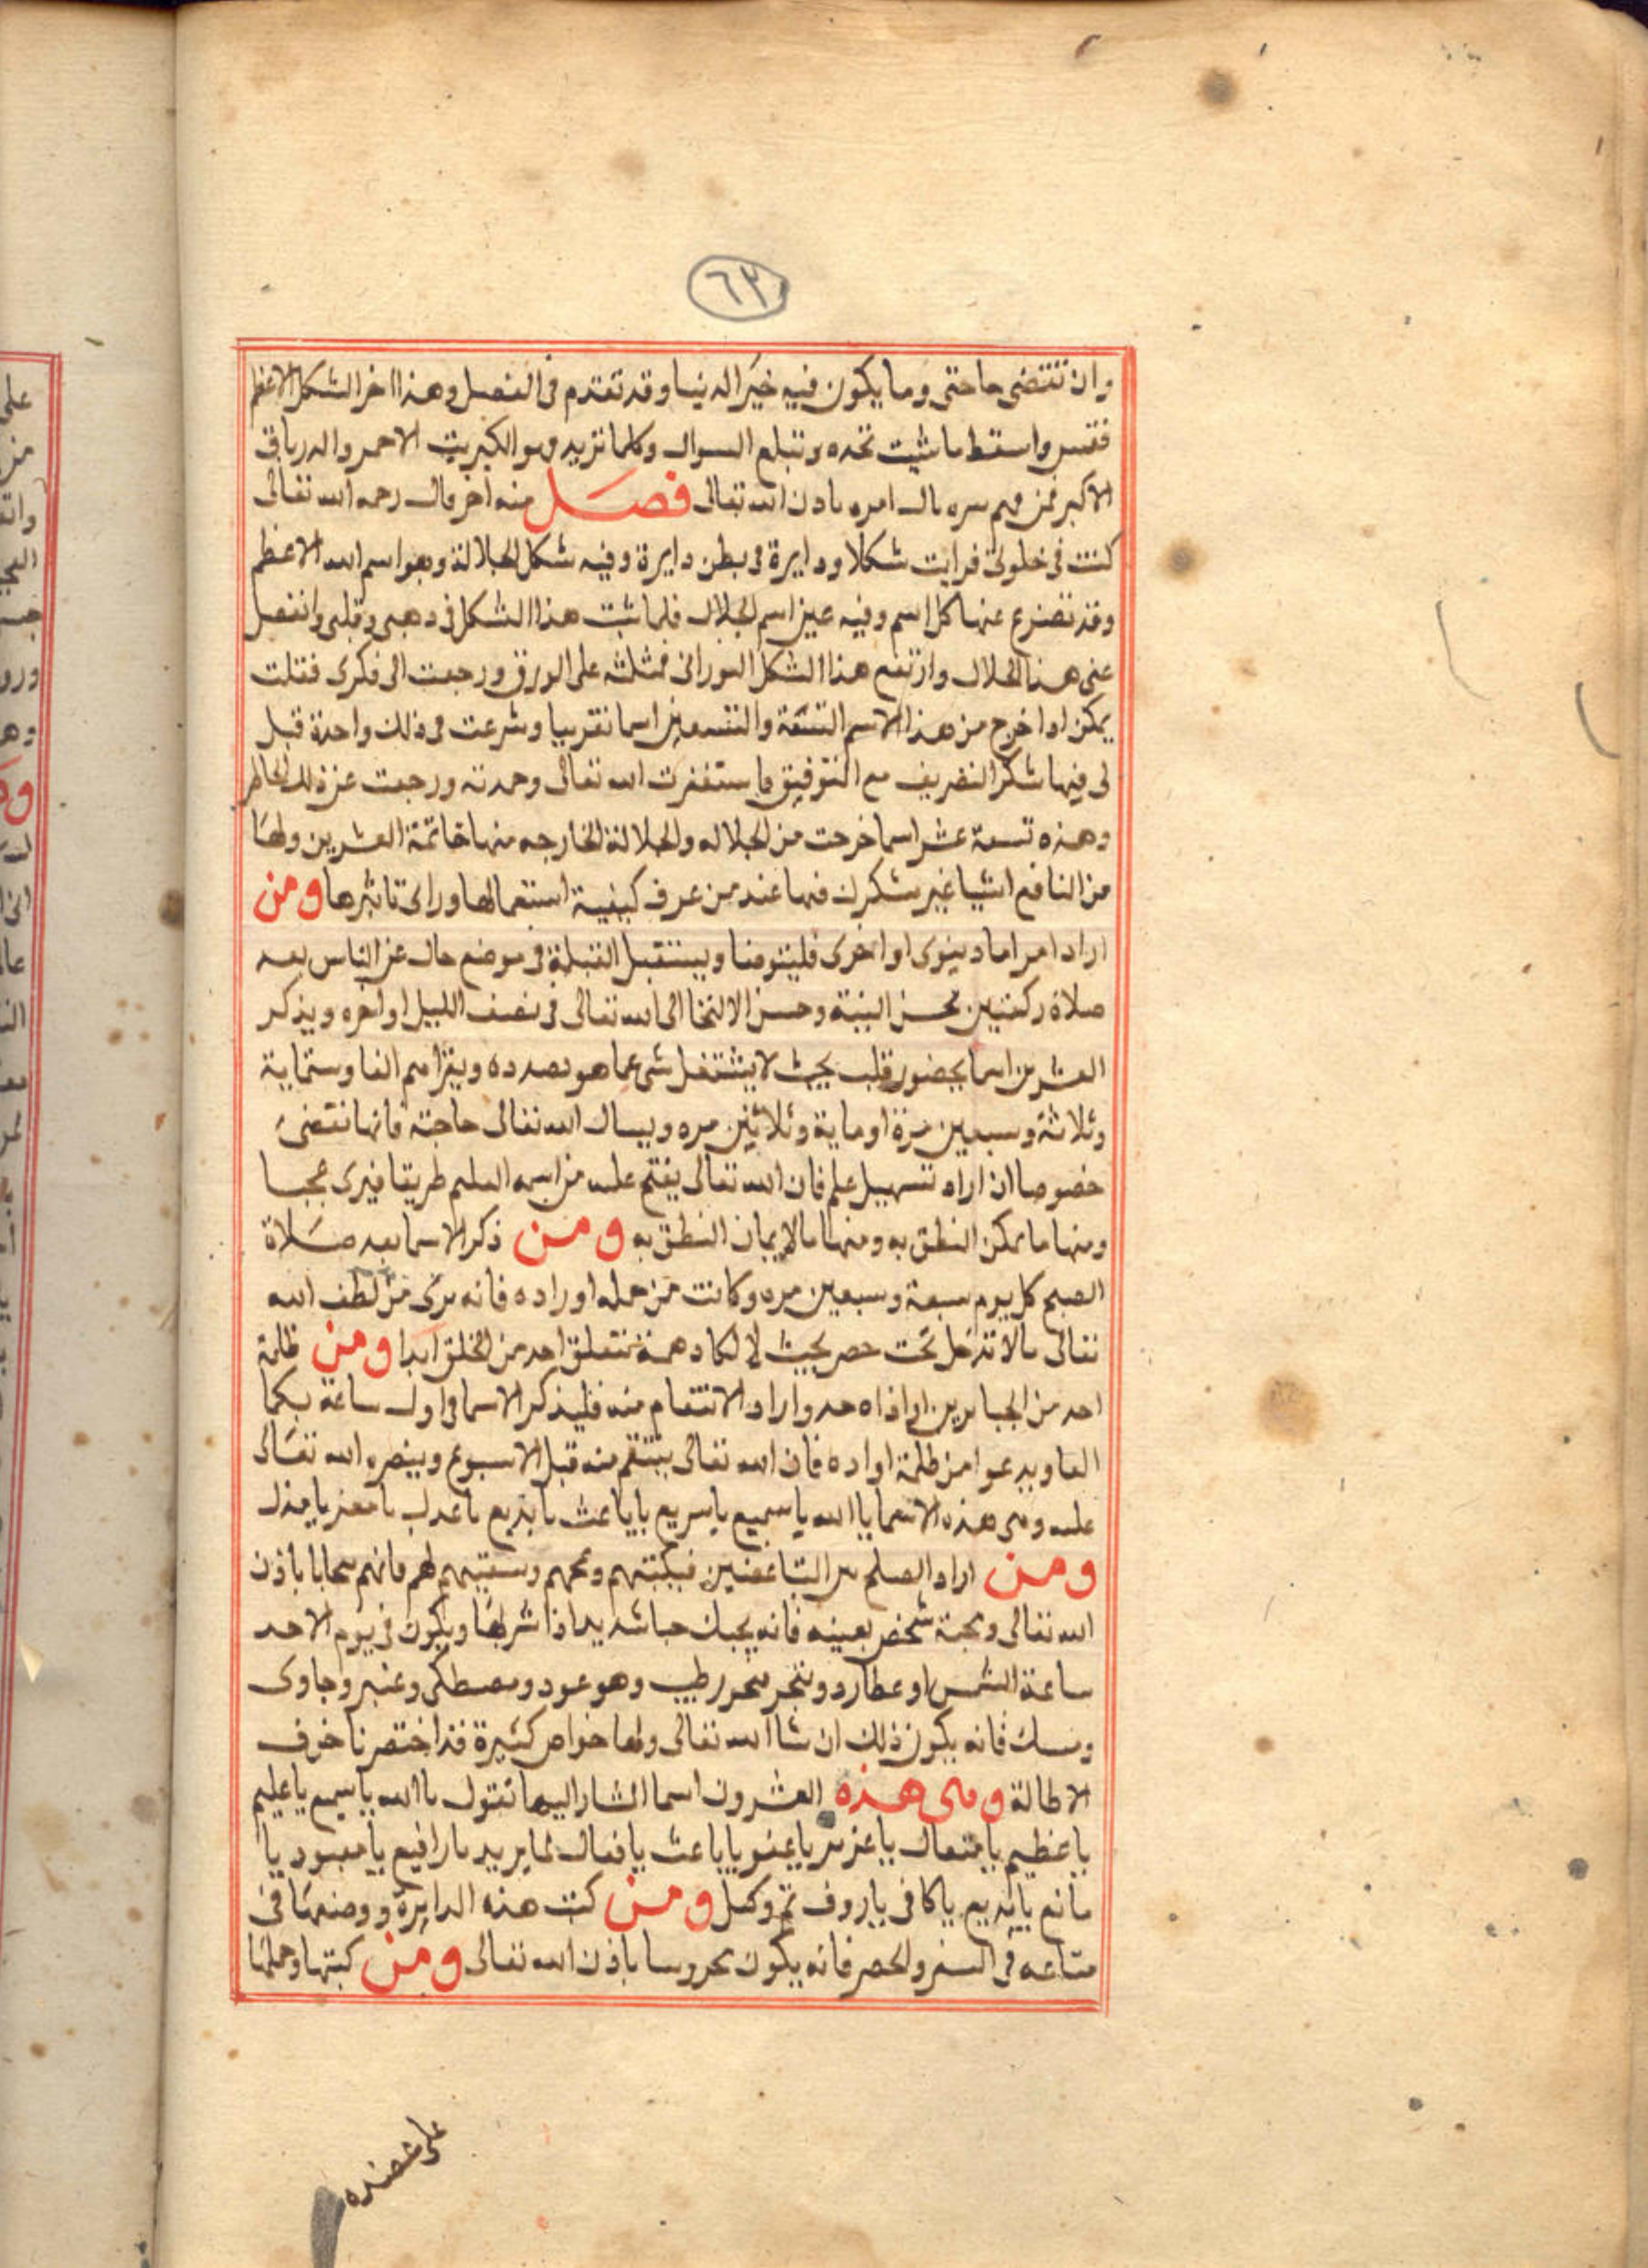 ٦٣
وان تقتضى حاجتى وما يكون فيه خير الدنيا وقد تقدم فى الفصل وهذا اخر الشكل الاعظم
فقس واسقط ما شيت تجده وتبلع السوال وكلما تريد وهو الكبريت الاحمر والدرياق
الاكبر فمن فهم سره نال امره باذن الله تعالى فصل منه اخر قال رحمه الله تعالى
كنت فى خلوتى فرايت شكلا ودايرة فى بطن دايرة وفيه شكل الجلالة وهو اسم الله الاعظم
وقد تفرع عنها كل اسم وفيه عين اسم الجلال فلما ثبت هذا الشكل فى دهبى وقلبى وانفصل
عنى هذا الجلال وارتفع هذا الشكل النورانى فمثلته على الورق ورجعت الى فكرى فقلت
يمكن اذا خرج من هذا الاسم التسعة والتسعين اسما تقريبا وشرعت فى ذلك واحدة قبل
لى فيها شكر التصريف مع التوفيق فاستغفرت الله تعالى وحمدته ورجعت عن ذلك الخاطر
وهذه تسعة عشر اسما خرجت من الجلاله والجلالة الخارجه منها خاتمة العشرين ولها
من النافع اشيا غير مشكرك فيها عند من عرف كيفية استعمالها وراى تاثيرها ومن
اراد امراما دينوى او اخروى فليتوضا ويستقبل القبلة فى موضع خال عن الناس بعد
صلاة ركعتين بحسن النية وحسن الالتجا الى الله تعالى فى نصف الليل او اخره ويذكر
العشرين اسما بحضور قلب بحيث لا يشتغل شى عما هو بصدده ويقرا الفا وستماية
وثلاثة وسبعين مرة او ماية وثلاثين مره ويسال الله تعالى حاجته فانها تقتضى
خصوصا ان اراد تسهيل علم فان الله تعالى يفتح عليه من اسمه العليم طريقا فيرى عجبا
ومنها ما يمكن النطق به ومنها مالا يمكن النطق به ومن ذكر الاسما بعد صلاة
الصبح كل يوم سبعة وسبعين مره وكانت من جمله اوراده فانه يرى من لطف الله
تعالى مالا تدخل تحت حصر بحيث لا تكاد همة تتعلق احد من الخلق ابدا ومن ظلمة
احد من الجبابرين او اذاه احد واراد الانتقام منه فليذكر الاسما فى اول ساعة
الفا ويدعوا من ظلمة او اده فان الله تعالى ينتقم منه قبل الاسبوع وينصره الله تعالى
عليه وهى هذه الاسما يا الله يا سميع يا سريع يا باعث يا بديع يا عدل يا معز يا مذل
ومن اراد الصلح بين التباغضين فيكتبهم ومحهم وسقيهم لهم فانهم تحابا باذن
الله تعالى ومحبة شخص بعينه فانه يحبك حبا شديدا اذا شربها ويكون فى يوم الاحد
ساعة الشمس او عطارد وبخر ببخور طيب وهو عود ومصطكى وعنبر وجاوى
ومسك فانه يكون ذلك ان شا الله تعالى ولها خواص كثيرة قد اختصرنا خوف
الاطالة وهى هذه العشرون اسما المشار اليها تقول يا الله يا سميع يا عليم
يا عظيم يا متعال يا عزيز يا عفو يا باعث يا فعال لما يريد يا رافع يا معبود يا
مانع يا بديع يا كافى يا روف تم وكمل ومن كتب هذه الدايرة ووضعها فى
متاعه فى السفر والحصر فانه يكون محروسا باذن الله تعالى ومن كتبها وحملها
على عضده